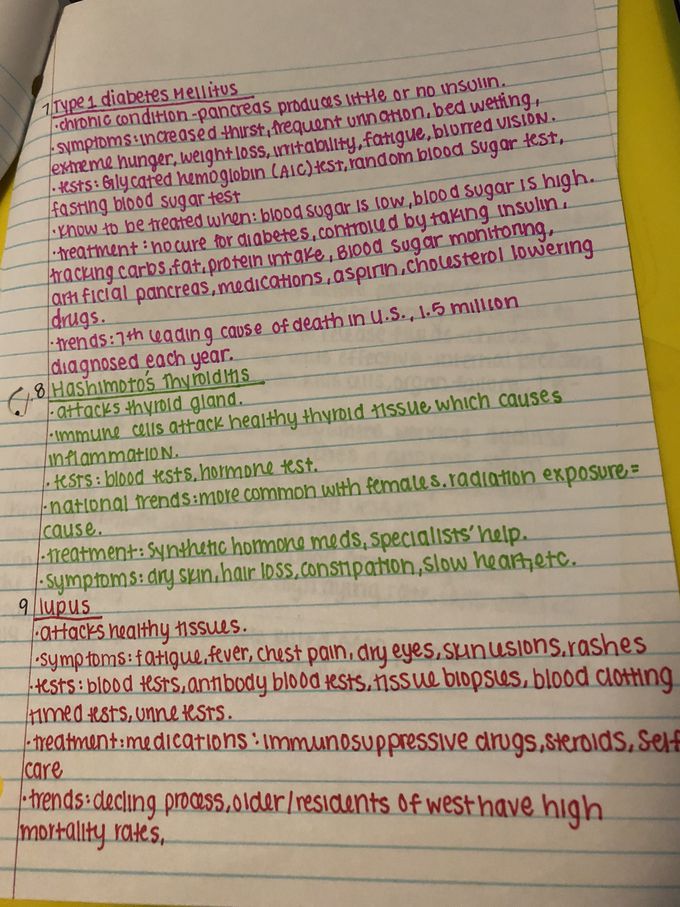 7 Type 1 diabetes Mellitus
·chronic condition -pancreas produces little or no insulin.
·symptoms: increased thirst, frequent urination, bed wetting,
extreme hunger, weight loss, irritability, fatigue, blurred vision.
·tests: Glycated hemoglobin (A1C) test, random blood sugar test,
fasting blood sugar test
·Know to be treated when: blood sugar is low, blood sugar is high.
·treatment: no cure for diabetes, controlled by taking insulin,
tracking carbs, fat, protein intake, Blood sugar monitoring,
artificial pancreas, medications, aspirin, cholesterol lowering
drugs.
·trends: 7th leading cause of death in U.S., 1.5 million
diagnosed each year.
8 Hashimoto's Thyroiditis
·attacks thyroid gland.
·immune cells attack healthy thyroid tissue which causes
inflammation.
·tests: blood tests, hormone test.
·national trends: more common with females. radiation exposure=
cause.
·treatment: Synthetic hormone meds, specialists' help.
·symptoms: dry skin, hair loss, constipation, slow heart, etc.
9 lupus
·attacks healthy tissues.
·symptoms: fatigue, fever, chest pain, dry eyes, skin lesions, rashes
·tests: blood tests, antibody blood tests, tissue biopsies, blood clotting
timed tests, urine tests.
·treatment: medications: immunosuppressive drugs, steroids, self
care
·trends: decling process, older/residents of west have high
mortality rates,